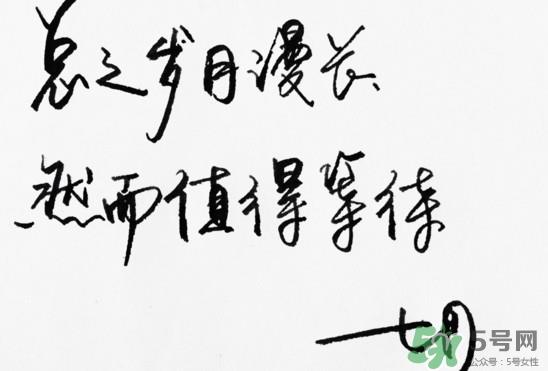 总之岁月漫长
然而值得等待
七月
5号网
公众号：5号女性